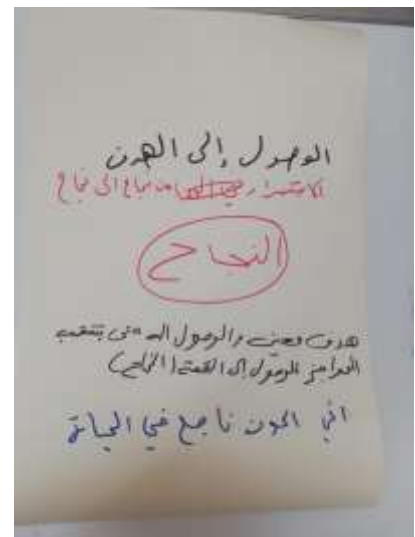 الوصول إلى الهدف
الاستمرار من نجاح الى نجاح
النجاح
هدف معين والوصول اليه
الوصول إلى القمة (النجاح)
اني اكون ناجح في الحياة